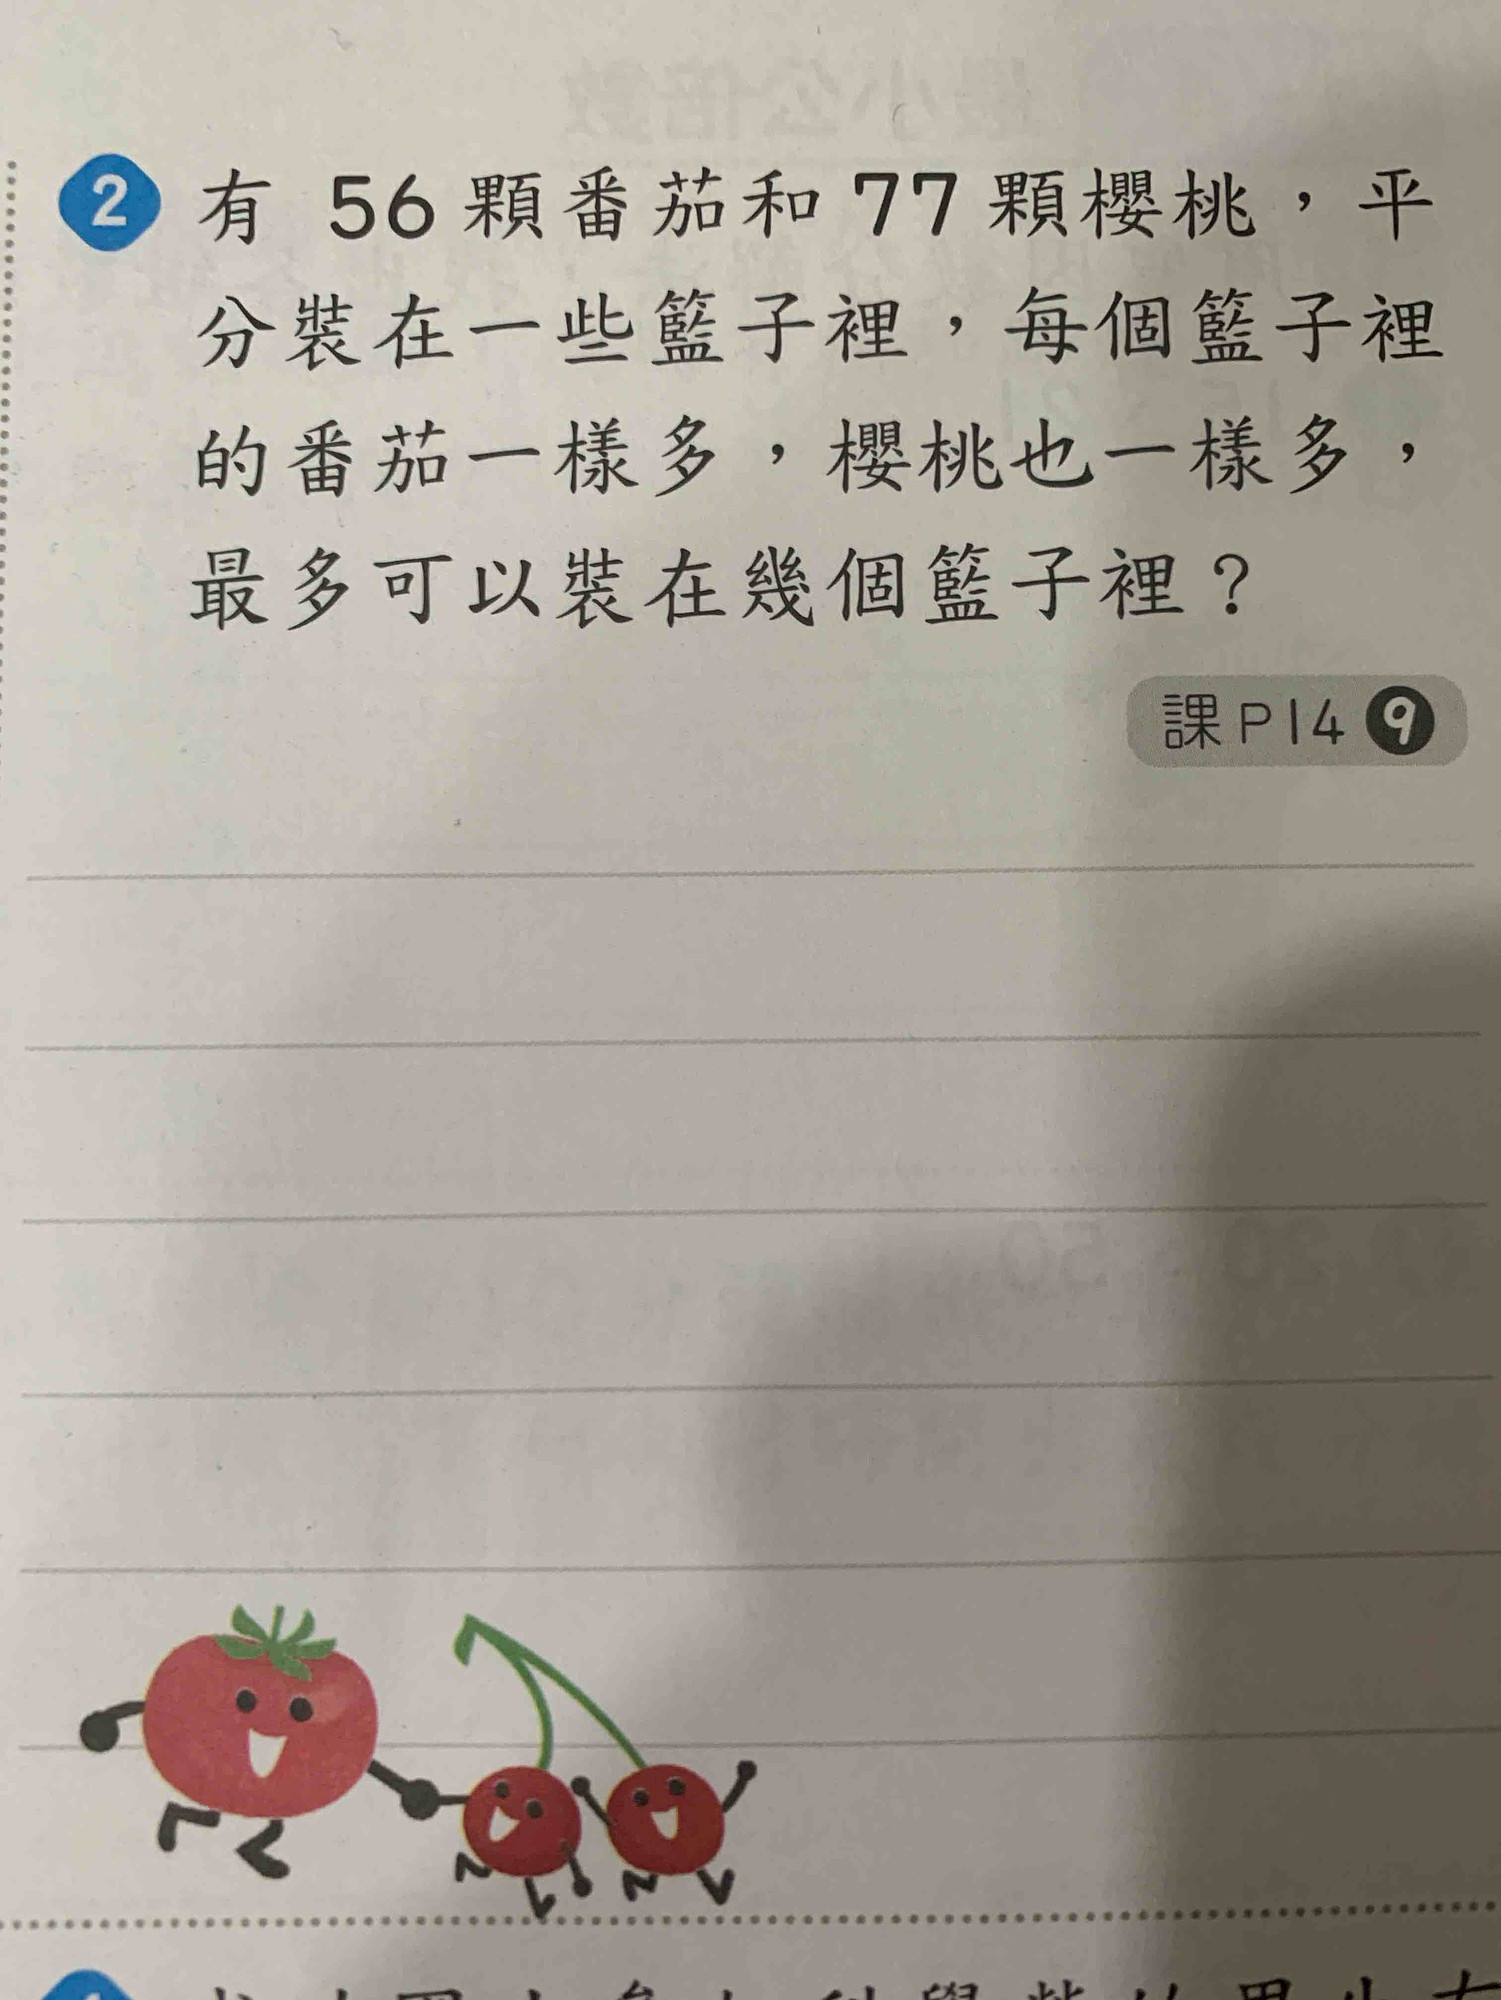 2 有 56 顆番茄和 77 顆櫻桃，平
分裝在一些籃子裡，每個籃子裡
的番茄一樣多，櫻桃也一樣多，
最多可以裝在幾個籃子裡？
課P14 9